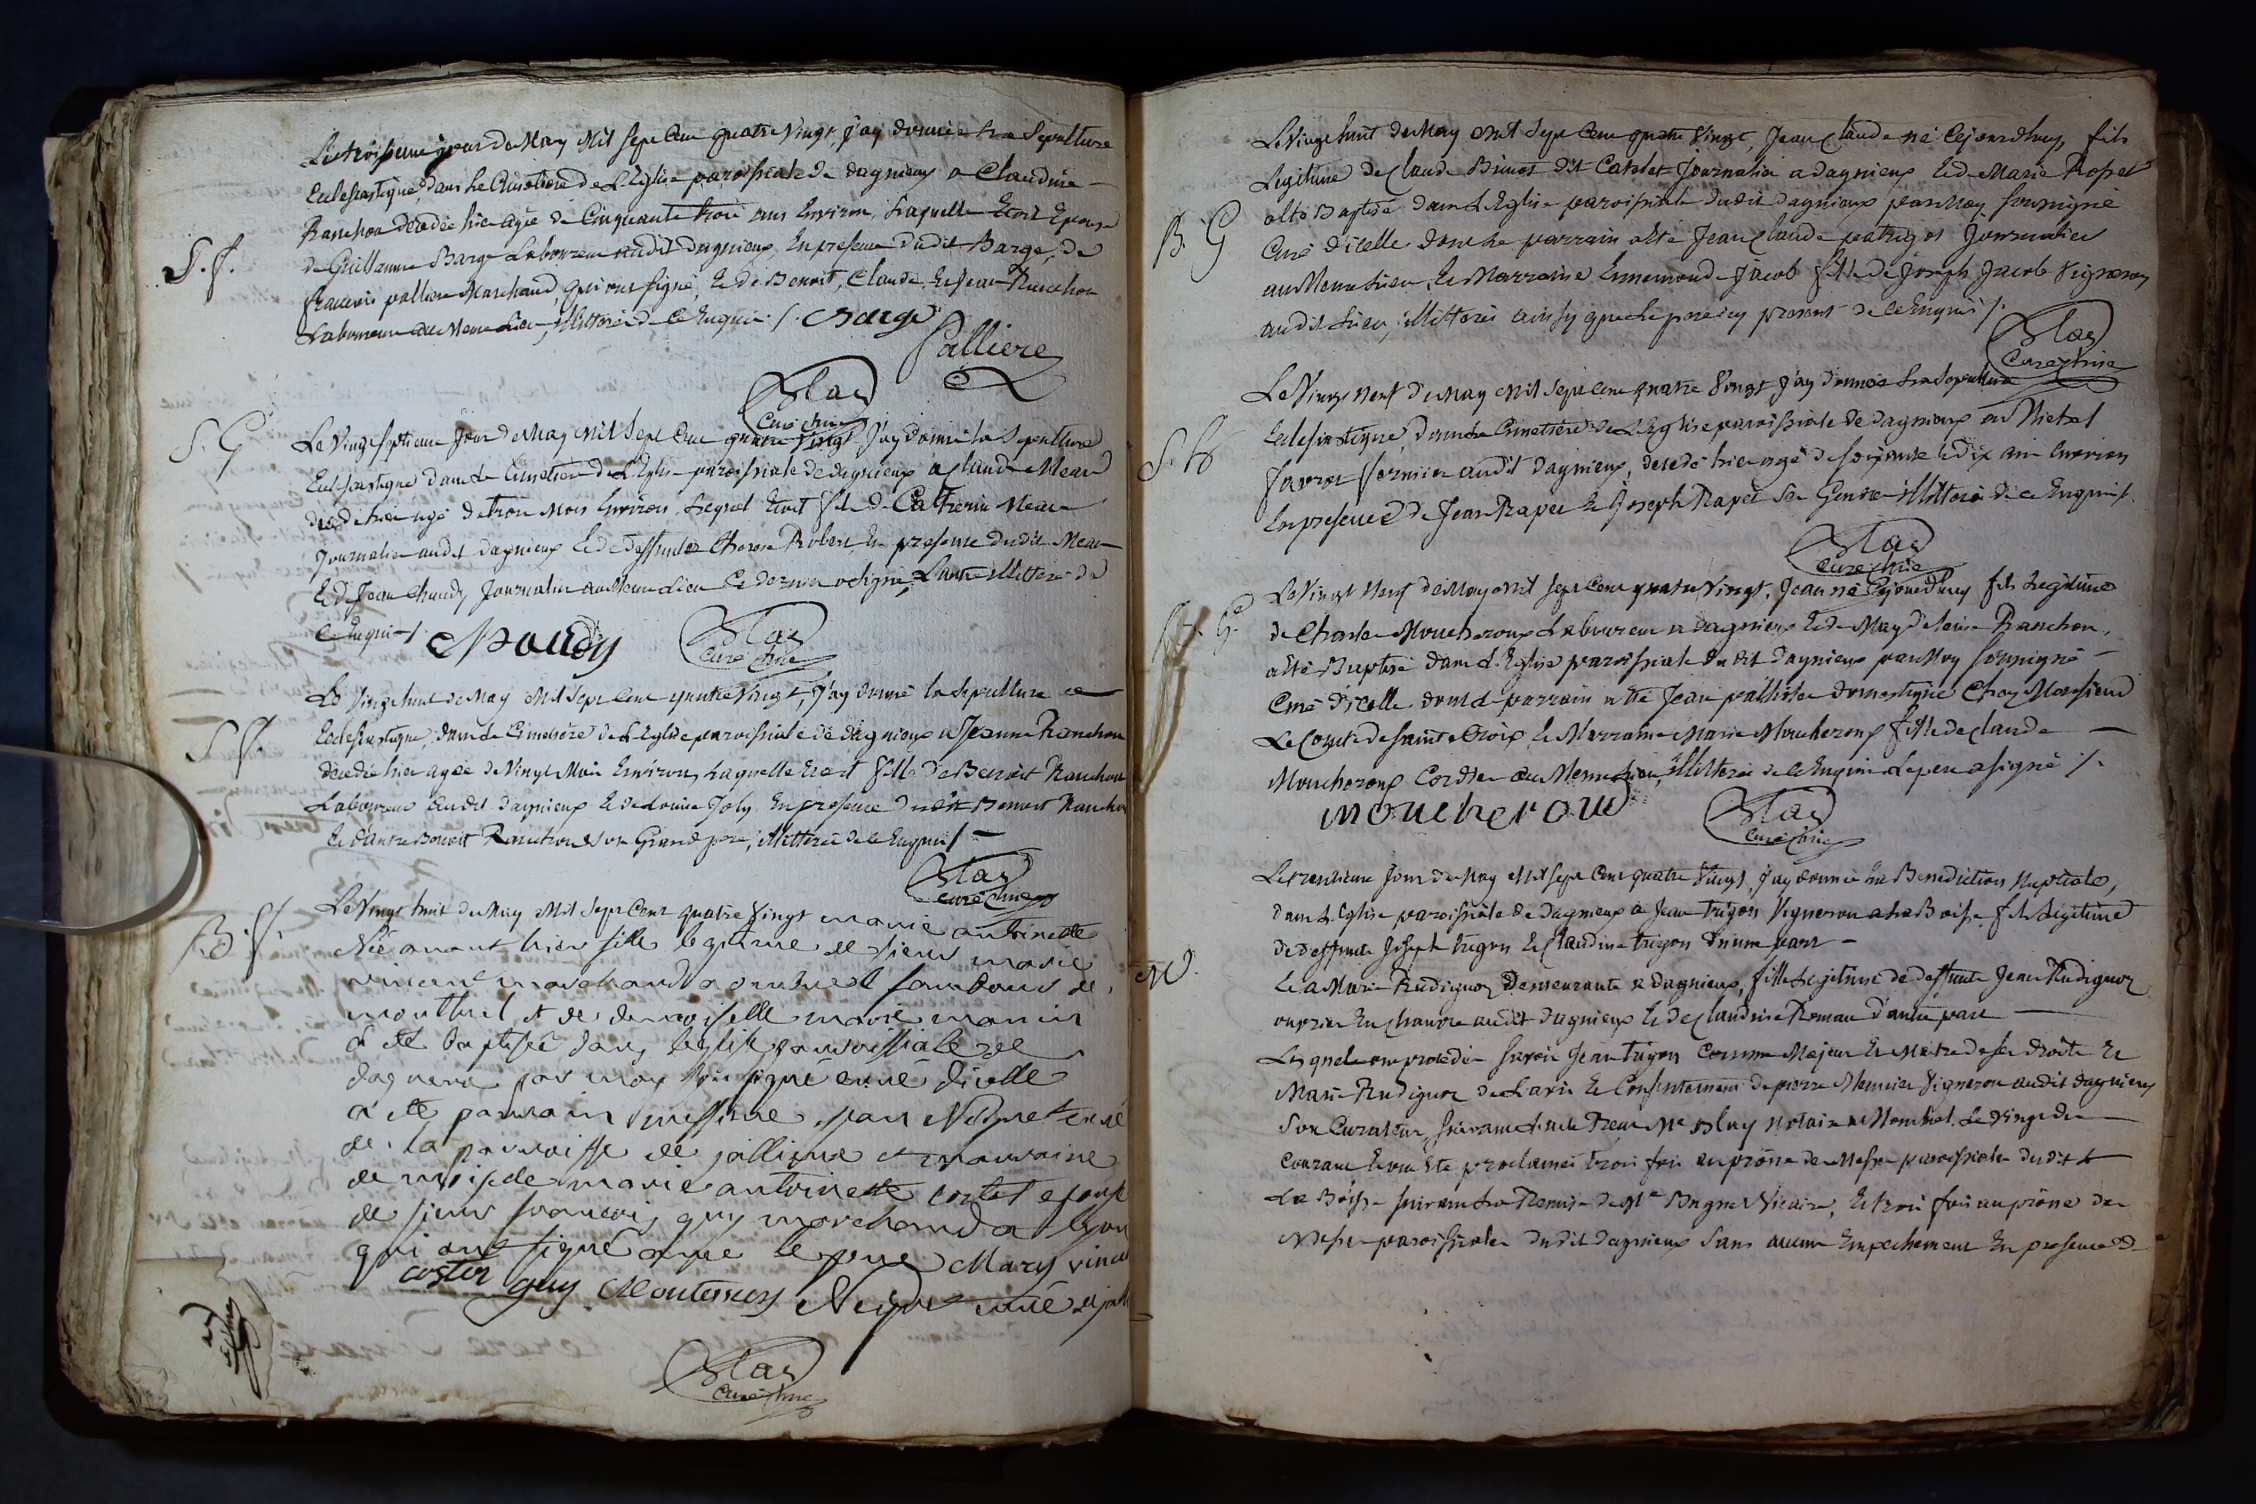 Le troisieme jour de May Mil Sept Cent quatre Vingt, J'ay donnée La Sepulture
Eclesiastique, dans Le Cimetiere de L'Eglise paroissiale de dagnieux a Claudine
Ranchon décédée hier agée de Cinquante trois ans Environ, Laquelle Etoit Epouse
de Guillaume Barge Laboureur audit dagnieux, En presence dudit Barge, de
francois palliere Marchand, qui ont signé, Et de Benoit, Claude, Et Jean Ranchon
Laboureurs au Meme Lieu, Illitterés de ce Enquis /. Barge
S. f.
Palliere
Blas
Curé
S. G
Le Vingt septieme Jour de May Mil Sept Cent quatre Vingt J'ay donné la Sepulture
Eclesiastique dans Le Cimetiere de L'Eglise paroissiale de dagnieux a Claude Mean
décédé hier agé de trois Mois Environ Lequel Etoit fils de Catherin Mean
Journalier audit dagnieux Et de deffunte Robert, En presence dudit Mean
Et de Jean Chaudy Journalier au Meme Lieu Ce dernier a signé, L'autre illitteré de
Ce Enquis /. Chaudy
Blas
Curé
Le Vingt huit de May Mil Sept Cent quatre Vingt, J'ay donné la Sepulture
S. f.
Eclesiastique, dans Le Cimetiere de L'Eglise paroissiale de dagnieux a Jeanne Ranchon
décédée hier agée de Vingt Mois Environ, Laquelle Etoit fille de Benoit Ranchon
Laboureur audit dagnieux Et de Louise Joly En presence dudit Benoit Ranchon
Et d'autre Benoit Ranchon son Grand pere, illitterés de ce Enquis /.
Blas
Curé
B. f.
Le Vingt huit de May Mil Sept Cent quatre Vingt marie antoinette
Née avant hier fille legitime de sieur marie
vincent marchand fauxbourg de
montluel et de demoiselle marie
a été baptisée dans l'église paroissiale de
dagnieux par moy soussigné curé d'icelle
a été parrain messire jean curé
de la parroisse de jallieux et marraine
demoiselle marie antoinette coster epouse
de sieur francois guy marchand a lyon
qui ont signé avec le pere Mary
coster guy curé
Blas
Curé
B. G
Le Vingt huit de May Mil Sept Cent quatre Vingt, Jean Claude né Cejourdhuy, fils
Legitime de Claude Binot dit Catelet Journalier a dagnieux Et de Marie Rosset
a été Baptisé dans L'Eglise paroissiale dudit dagnieux par Moy soussigné
Curé d'icelle dont Le parrain a été Jean Claude Journalier
au Meme Lieu, Et Marraine Ennemonde Jacob fille de Joseph Jacob Vigneron
audit Lieu, illitterés ainsy que Le pere icy present de ce Enquis /.
Blas
Curé
Le Vingt Neuf de May Mil Sept Cent quatre Vingt J'ay donnée La Sepulture
S. h
Eclesiastique, dans Le Cimetiere de L'Eglise paroissiale de dagnieux a Michel
fermier audit dagnieux, décédé hier agé de soixante Et dix ans Environ
En presence de Jean Rapet Et Joseph Rapet Son Gendre illitterés de ce Enquis /.
Blas
Curé
B. G.
Le Vingt Neuf de May Mil Sept Cent quatre Vingt, Jean né Cejourdhuy fils Legitime
de Charle Moucheroux Laboureur a dagnieux Et de Ranchon,
a été Baptisé dans L'Eglise paroissiale dudit dagnieux par Moy soussigné
Curé d'icelle dont Le parrain a été Jean domestique Chez Monsieur
Le Comte de Sainte Croix, Et Marraine Marie Moucheroux fille de Claude
Moucheroux Cordier au Meme Lieu, illitterés de ce Enquis Le pere a signé /.
moucheroud
Blas
Curé
Le trentieme Jour de May Mil Sept Cent quatre Vingt, J'ay donnée La Benediction Nuptiale,
dans L'Eglise paroissiale de dagnieux a Jean Vigneron a La Boisse fils Legitime
de deffunt Joseph Et Claudine d'une part
M.
Et a Marie Rudigoz Demeurante a dagnieux, fille Legitime de deffunt Jean Rudigoz
ouvrier En Chanvre audit dagnieux Et de Claudine d'autre part
Lesquels ont procédé sçavoir Jean Comme Majeur Et Maitre de ses droits Et
Marie Rudigoz de L'avis Et Consentement de pierre Vigneron audit dagnieux
Son Curateur, suivant Me Blay Notaire a Montluel Le Vingt du
Courant Et ont été proclamés trois fois au prône de Messe paroissiale dudit
La Boisse suivant La Remise de Mr Vicaire, Et trois fois au prône de
Messe paroissiale dudit dagnieux Sans aucun Empechement En presence de